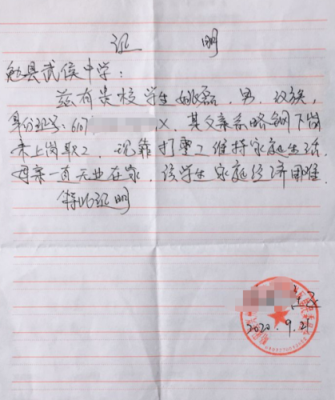 证 明
勉县武侯中学：
兹有贵校学生姚磊，男，汉族，
身份证号：6107 X，其父亲系略钢下岗
未上岗职工，现靠打零工维持家庭生活，
母亲一直无业在家，该学生家庭经济困难。
特此证明
2020.9.21